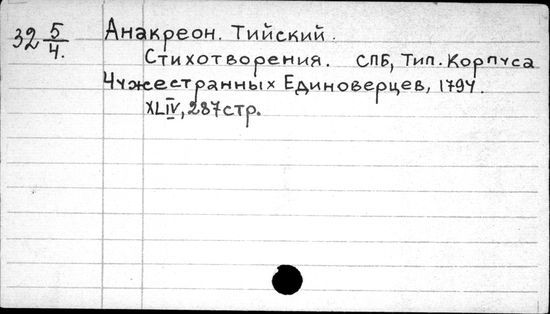 32 5/4. Анакреон. Тийский.
Стихотворения. СПБ, Тип. Корпуса
Чужестранных Единоверцев, 1794.
XLIV, 287 стр.